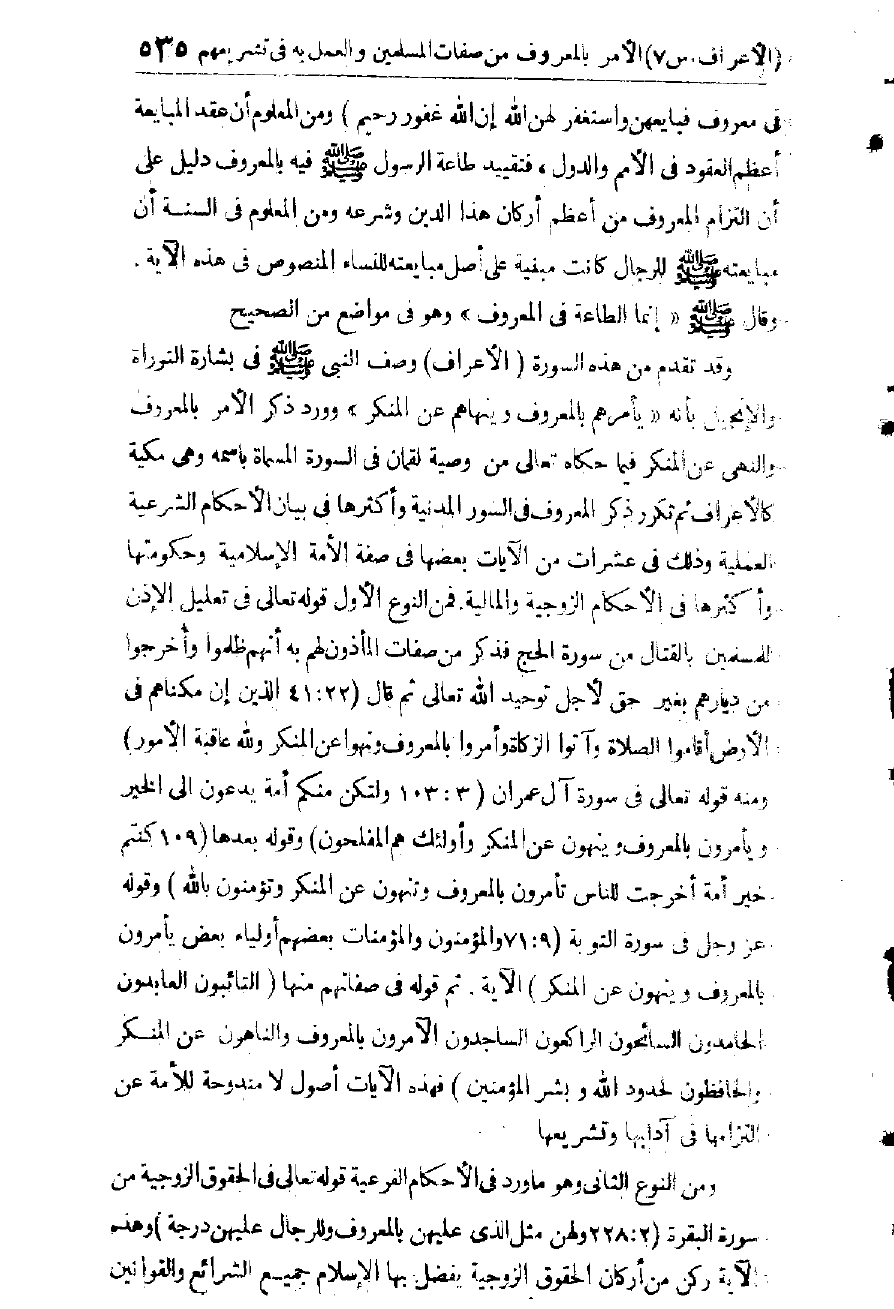 (الأعراف. س ٧) الأمر بالمعروف من صفات المسلمين والعمل به فى تشريعهم ٥٣٥
فى معروف فبايعهن واستغفر لهن الله إن الله غفور رحيم ) ومن المعلوم أن عقد المبايعة
أعظم العقود فى الأمم والدول ، فتقييد طاعة الرسول ﷺ فيه بالمعروف دليل على
أن التزام المعروف من أعظم أركان هذا الدين وشرعه ومن المعلوم فى السنة أن
مبايعته ﷺ للرجال كانت مبنية على أصل مبايعته للنساء المنصوص فى هذه الآية .
وقال ﷺ « إنما الطاعة فى المعروف » وهو فى مواضع من الصحيح
وقد تقدم من هذه السورة ( الأعراف ) وصف النبى ﷺ فى بشارة التوراة
والإنجيل بأنه « يأمرهم بالمعروف وينهاهم عن المنكر » وورد ذكر الأمر بالمعروف
والنهى عن المنكر فيما حكاه تعالى من وصية لقمان فى السورة المسماة باسمه وهى مكية
كالأعراف ثم تكرر ذكر المعروف فى السور المدنية وأكثرها فى بيان الأحكام الشرعية
العملية وذلك فى عشرات من الآيات بعضها فى صفة الأمة الإسلامية وحكومتها
وأكثرها فى الأحكام الزوجية والمالية. فمن النوع الأول قوله تعالى فى تعليل الإذن
للمسلمين بالقتال من سورة الحج فذكر من صفات المأذون لهم به أنهم ظلموا وأخرجوا
من ديارهم بغير حق لأجل توحيد الله تعالى ثم قال (٤١:٢٢ الذين إن مكناهم فى
الأرض أقاموا الصلاة وآتوا الزكاة وأمروا بالمعروف ونهوا عن المنكر ولله عاقبة الأمور)
ومنه قوله تعالى فى سورة آل عمران ( ٣ : ١٠٣ ولتكن منكم أمة يدعون الى الخير
ويأمرون بالمعروف وينهون عن المنكر وأولئك هم المفلحون) وقوله بعدها (١٠٩ كنتم
خير أمة أخرجت للناس تأمرون بالمعروف وتنهون عن المنكر وتؤمنون بالله ) وقوله
عز وجل فى سورة التوبة (٧١:٩ والمؤمنون والمؤمنات بعضهم أولياء بعض يأمرون
بالمعروف وينهون عن المنكر ) الآية . ثم قوله فى صفاتهم منها ( التائبون العابدون
الحامدون السائحون الراكعون الساجدون الآمرون بالمعروف والناهون عن المنكر
والحافظون لحدود الله وبشر المؤمنين ) فهذه الآيات أصول لا مندوحة للأمة عن
التزامها فى آدابها وتشريعها
ومن النوع الثانى وهو ما ورد فى الأحكام الفرعية قوله تعالى فى الحقوق الزوجية من
سورة البقرة (٢٢٨:٢ ولهن مثل الذى عليهن بالمعروف وللرجال عليهن درجة ) وهذه
الآية ركن من أركان الحقوق الزوجية يفضل بها الإسلام جميع الشرائع والقوانين